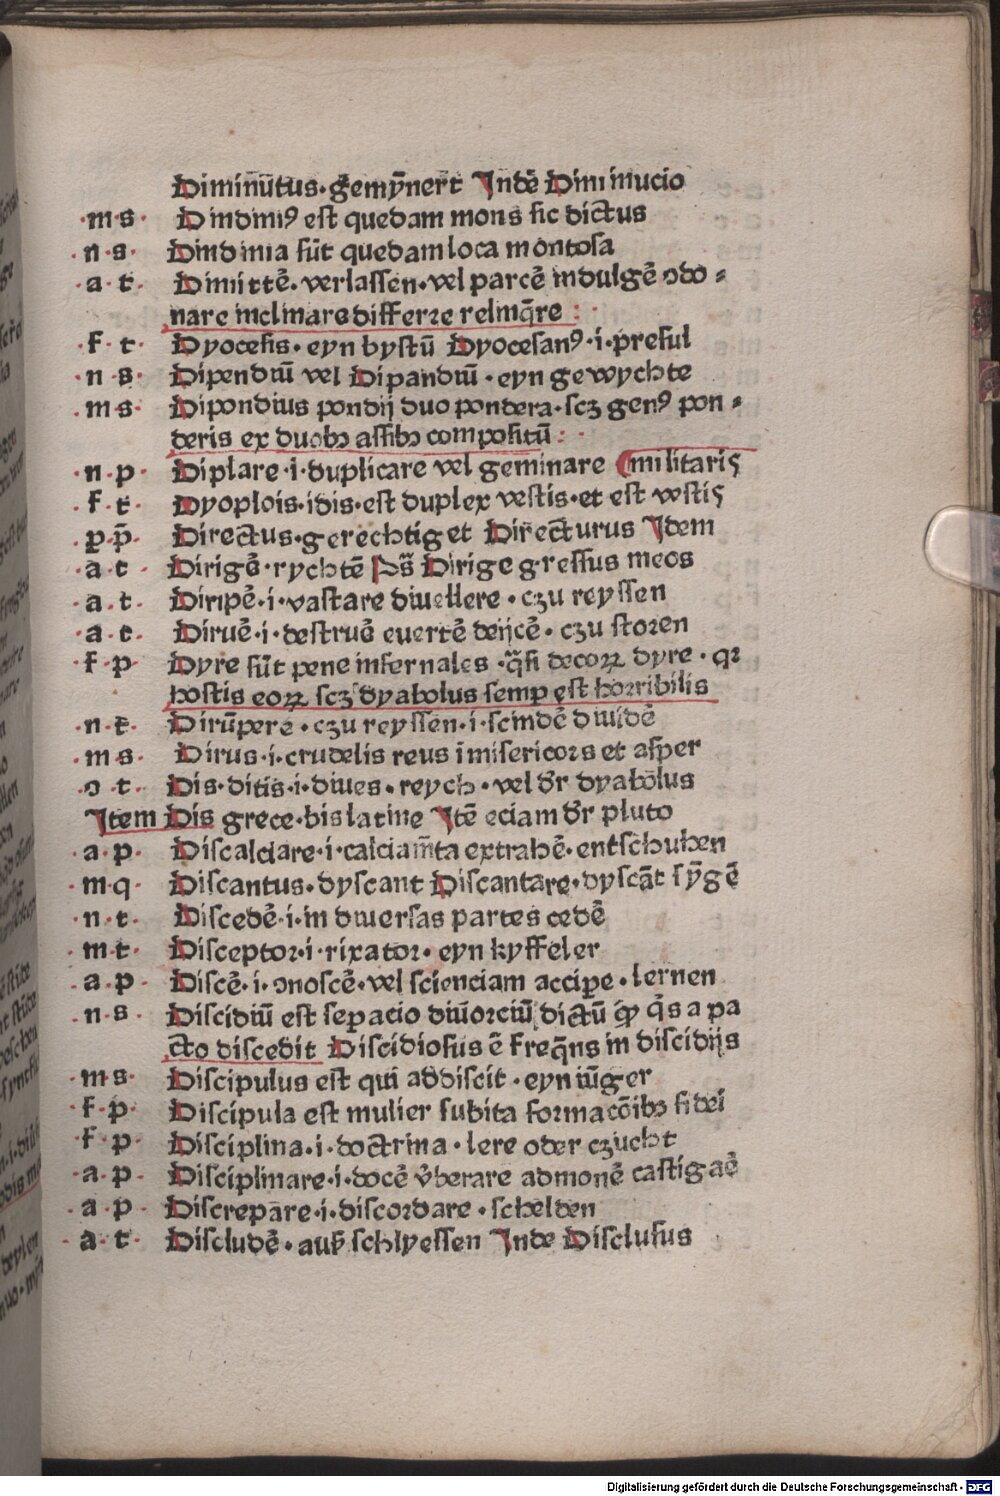 Diminūtus·gemȳnert Indē Diminucio
·m·s· Dindimꝰ est quedam mons sic dictus
·n·s· Dindimia sūt quedam loca montosa
·a·t· Dimittē·verlassen·vel parcē indulgē ↄdo⸗
nare inclinare differre relinq̄re :
·f·t· Dyocesis·eyn bystū Dyocesanꝰ·i·presul
·n·s· Dipendiū vel Dipandiū·eyn gewychte
·m·s· Dipondius pondij duo pondera·scꝫ genꝰ pon⸗
deris ex duobꝫ assibꝫ compositū :·
·n·p· Diplare·i·duplicare vel geminare ⸿militaris
·f·t· Dyoplois·idis·est duplex vestis·et est vestis
·p·p̄· Directus·gerechtiget Directurus Idem
·a·t· Dirigē·rychtē Ps̄ Dirige gressus meos
·a·t· Diripē·i·vastare diuellere·czu reyssen
·a·t· Diruē·i·destruē euertē deijcē·czu storen
·f·p· Dyre sūt pene infernales·q̄si decoꝝ dyre·qꝛ
hostis eoꝝ scꝫ dyabolus semp est horribilis
·n·t· Dirūpere·czu reyssen·i·scindē diuidē
·m·s· Dirus·i·crudelis reus īmisericors et asper
·ↄ·t· Dis·ditis·i·diues·reych·vel dr̄ dyabolus
Item Dis grece·bis latine Itē eciam dr̄ pluto
·a·p· Discalciare·i·calciam̄ta extrahē·entschuhen
·m·q· Discantus·dyscant Discantare·dyscāt sȳgē
·n·t· Discedē·i·in diuersas partes cedē
·m·t· Disceptor·i·rixator·eyn kyffeler
·a·p· Discē·i·ↄnoscē·vel scienciam accipe·lernen
·n·s· Discidiū est sepacio diuorciū dictū ꝙ q̄s a pa
cto discedit Discidiosus ē freq̄ns in discidijs
·m·s· Discipulus est qui addiscit·eyn iūger
·f·p· Discipula est mulier subita formacōibꝫ fidei
·f·p· Disciplina·i·doctrina·lere oder czucht
·a·p· Disciplinare·i·docē v̄berare admonē castigaē
·a·p· Discrepare·i·discordare·schelden
·a·t· Discludē·auß schlyessen Inde Disclusus
Digitalisierung gefördert durch die Deutsche Forschungsgemeinschaft - DFG